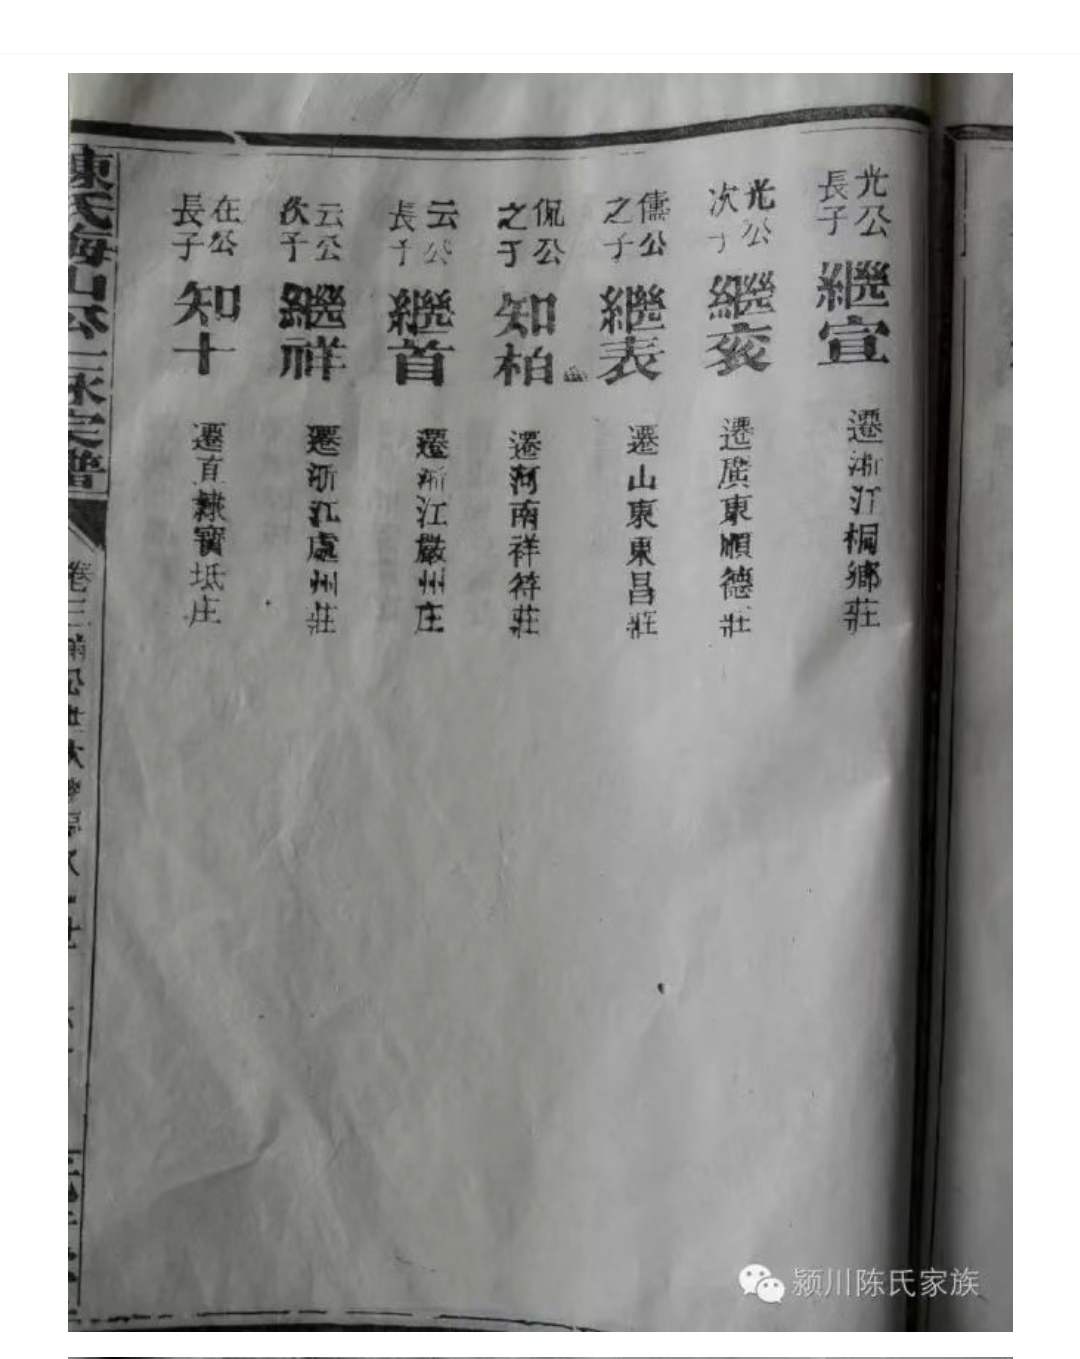 光公
長子
繼宣
遷浙江桐鄉莊
光公
次子
繼衮
遷廣東順德莊
儒公
之子
繼表
遷山東東昌莊
侃公
之子
知柏
遷河南祥符莊
云公
長子
繼首
遷浙江嚴州庄
云公
次子
繼祥
遷浙江處州莊
在公
長子
知十
遷直隸寶坻庄
陳氏海山公二脉宗譜
卷三
颍川陈氏家族